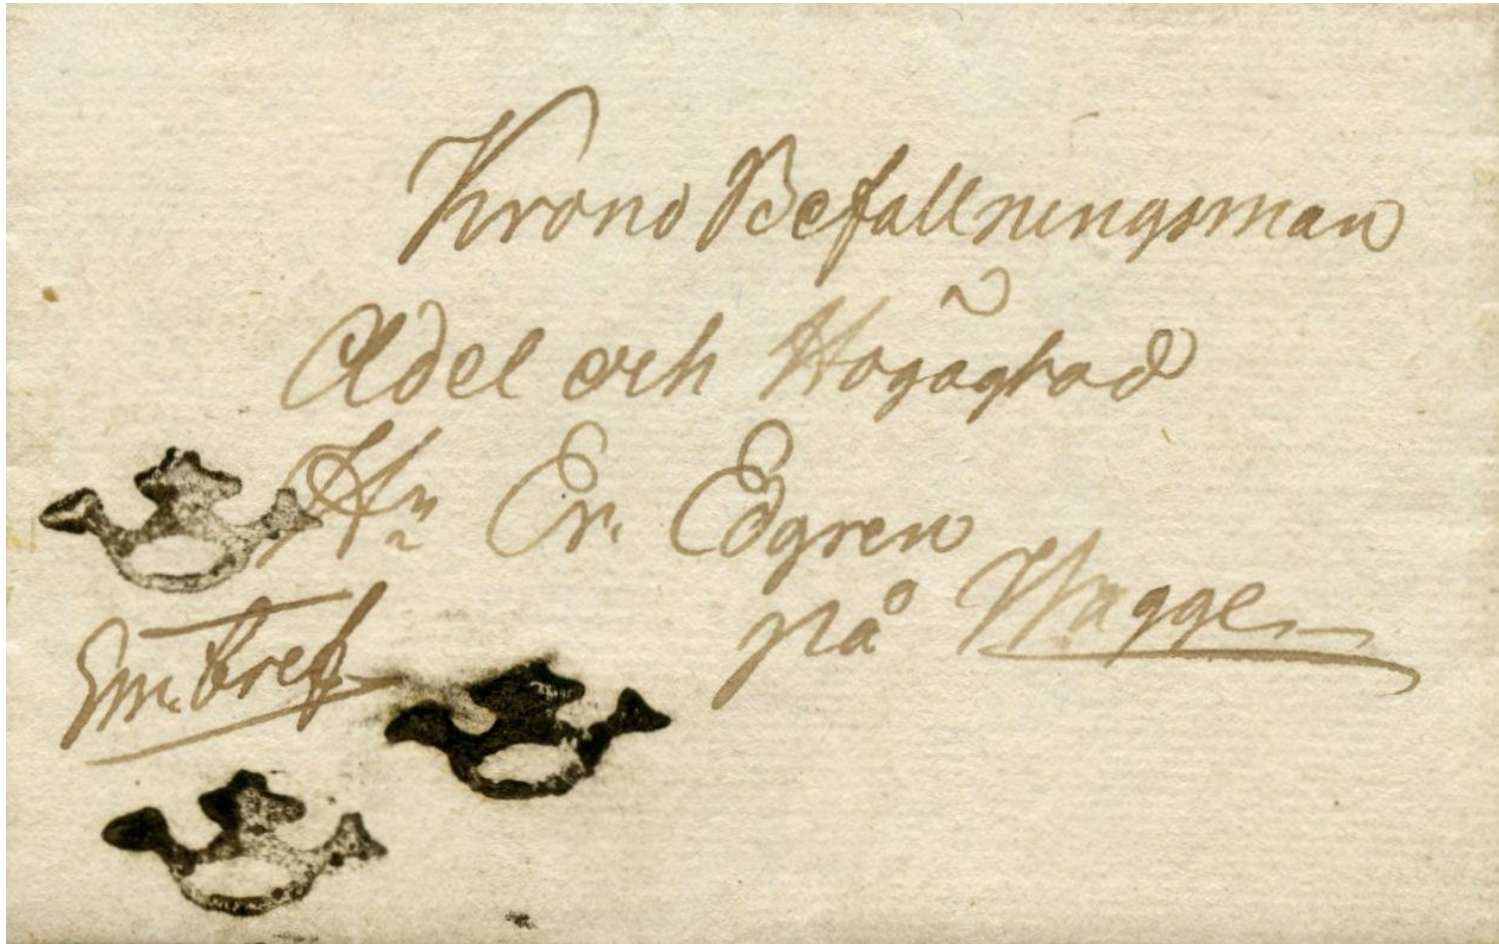 Krono Befallningsman
Ädel och Högagtad
Hr Er. Edgren
på Wagge
Em. bref